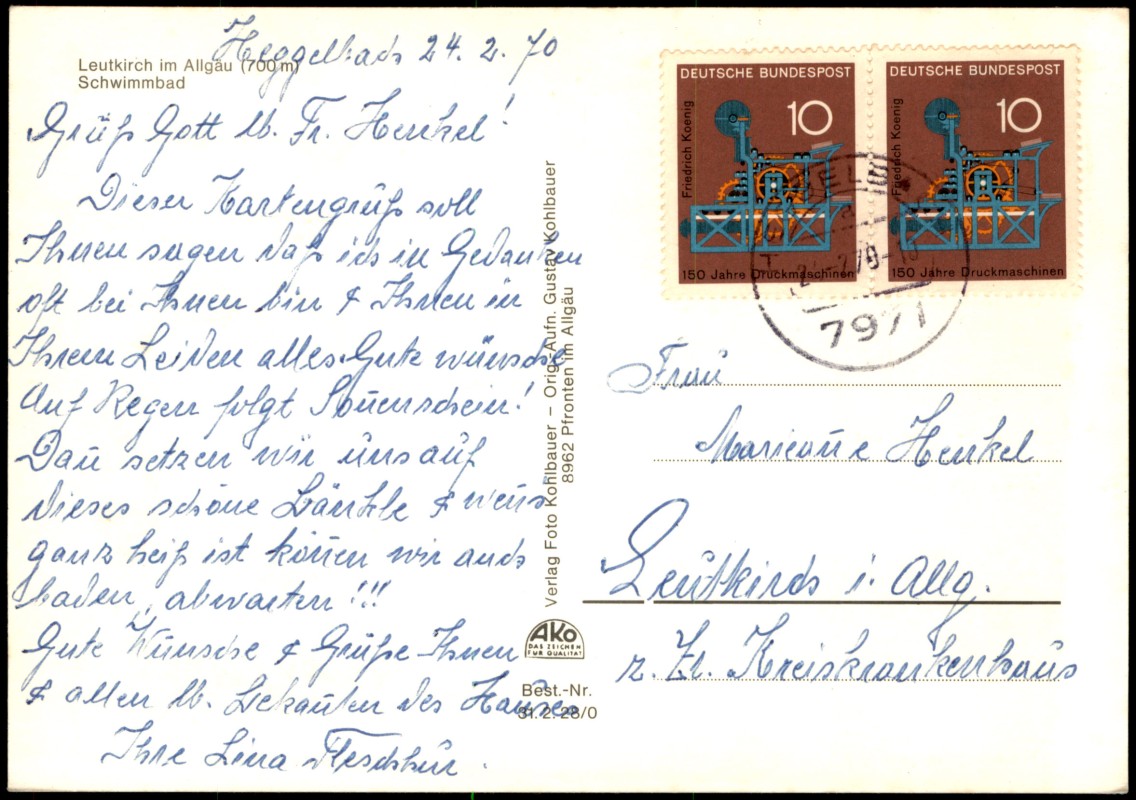 Heggelbach 24.2.70
Leutkirch im Allgäu (700 m)
Schwimmbad
Grüß Gott lb. Fr. Henkel!
Dieser Kartengrüß soll
Ihnen sagen daß ich in Gedanken
oft bei Ihnen bin & Ihnen in
Ihrem Leiden alles Gute wünsche
Auf Regen folgt Sonnenschein!
Dan setzen wir uns auf
dieses schöne Bänkle & wens
ganz heiß ist können wir auch
baden, abwarten!!!
Gute Wünsche & Grüße Ihnen
& allen lb. Bekanten des Hauses
Ihre Lina
Verlag Foto Kohlbauer – Orig. Aufn. Gustav Kohlbauer
8962 Pfronten im Allgäu
AKO
DAS ZEICHEN
FÜR QUALITÄT
Best.-Nr.
31.2.28/0
DEUTSCHE BUNDESPOST
10
Friedrich Koenig
150 Jahre Druckmaschinen
DEUTSCHE BUNDESPOST
10
Friedrich Koenig
150 Jahre Druckmaschinen
7971
Frau
Marianne Henkel
Leutkirch i. Allg.
z. Zt. Kreiskrankenhaus